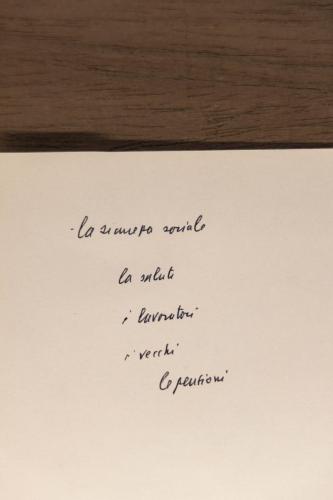 - la sicurezza sociale
la salute
i lavoratori
i vecchi
le pensioni